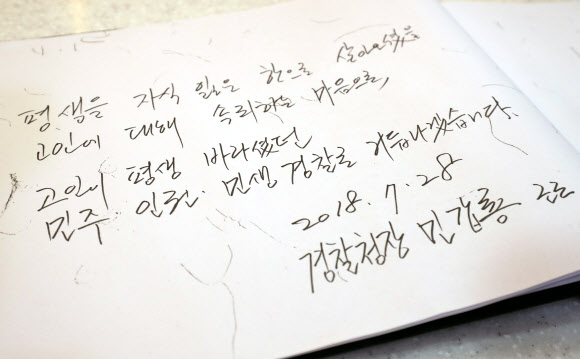 평생을 자식 잃은 한으로 살아오셨을
고인에 대해 속죄하는 마음으로,
고인이 평생 바라셨던
민주·인권·민생 경찰로 거듭나겠습니다.
2018. 7. 28
경찰청장 민갑룡